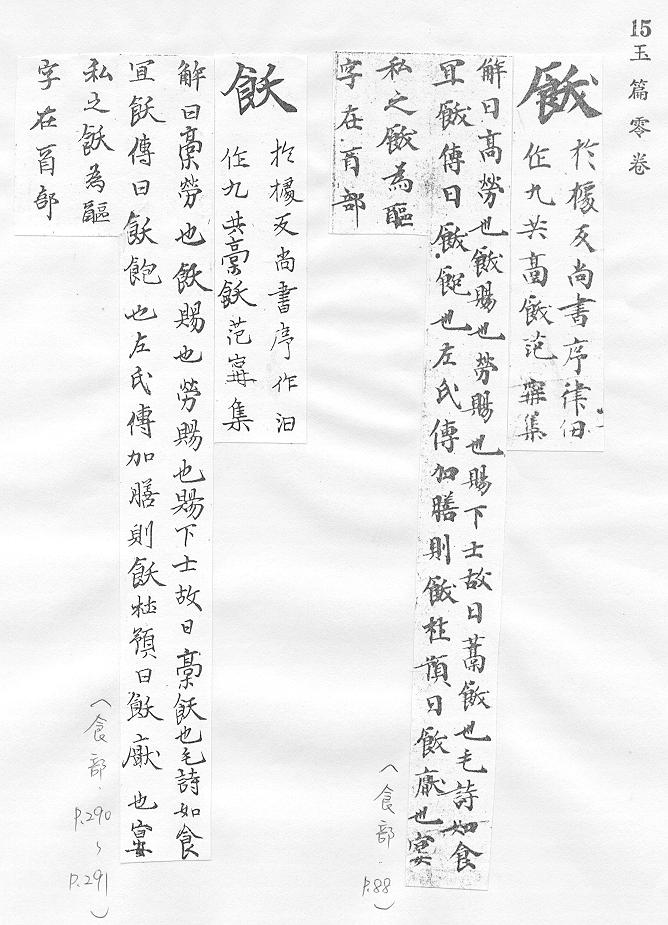 15玉篇零卷
飫
於據反尚書序作汨
作九共高飫范寗集
解曰高勞也飫賜也勞賜也賜下士故曰蒿飫也毛詩如食
冝飫傳曰飫飽也左氏傳加膳則飫杜預曰飫猒也宴
私之飫為䬕
字在酉部
(食部.P.88)
飫
於據反尚書序作汨
作九共槀飫范寗集
解曰槀勞也飫賜也勞賜也賜下士故曰槀飫也毛詩如食
冝飫傳曰飫飽也左氏傳加膳則飫杜預曰飫猒也宴
私之飫為䬕
字在酉部
(食部.P.290~P.291)